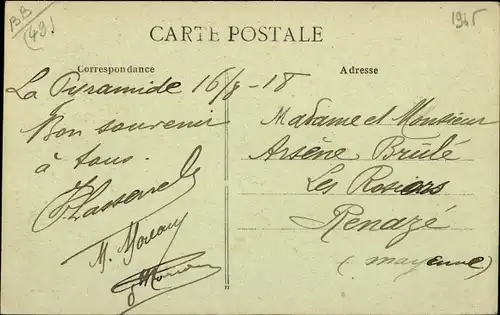 BB
(49)
1965
CARTE POSTALE
Correspondance
Adresse
La Pyramide 16/8-18
Bon souvenir
à tous.
M. Moreau
Madame et Monsieur
Arsène Brûlé
Les Rosiers
Renazé
(Mayenne)